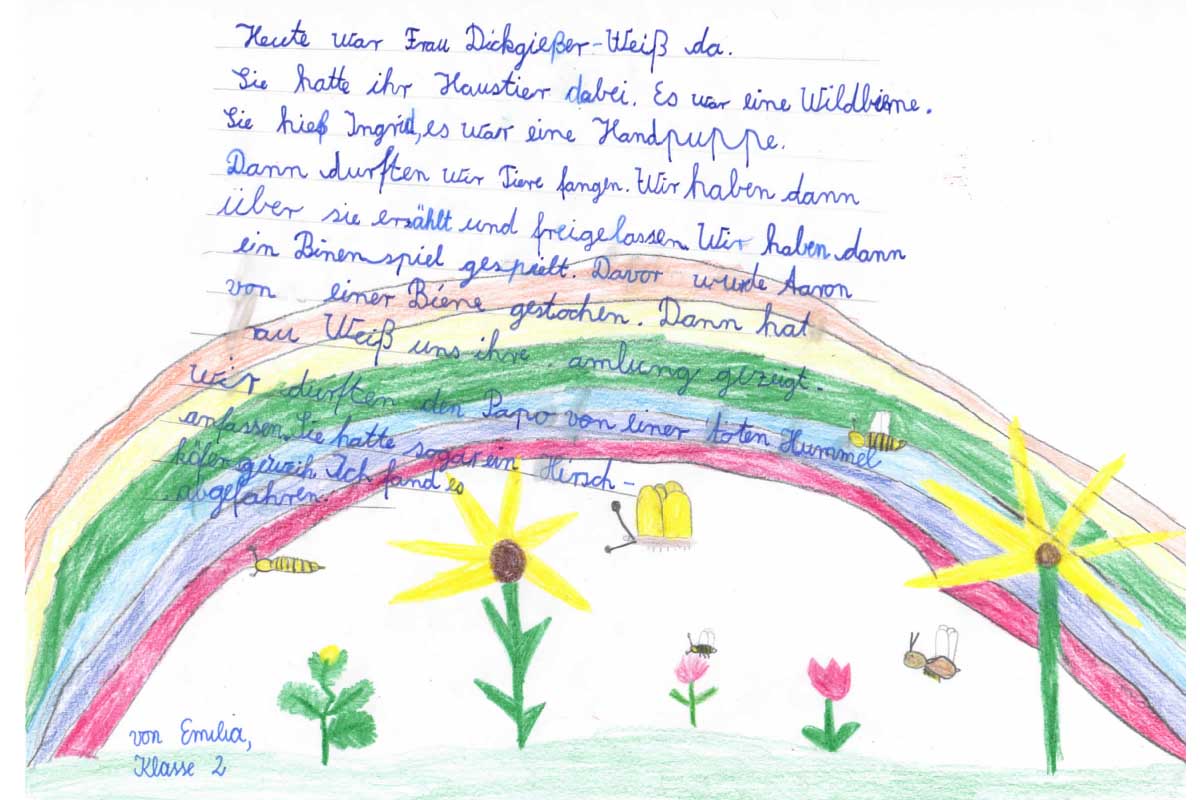 Heute war Frau Dickgießer-Weiß da.
Sie hatte ihr Haustier dabei. Es war eine Wildbiene.
Sie hieß Ingrid, es war eine Handpuppe.
Dann durften wir Tiere fangen. Wir haben dann
über sie erzählt und freigelassen. Wir haben dann
ein Binenspiel gespielt. Davor wurde Aaron
von einer Biene gestochen. Dann hat
rau Weiß uns ihre amlung gezeigt.
Wir durften den Papo von einer toten Hummel
anfassen. Sie hatte sogar ein Hirsch-
käfergeweih. Ich fand es
abgefahren.
von Emilia,
Klasse 2